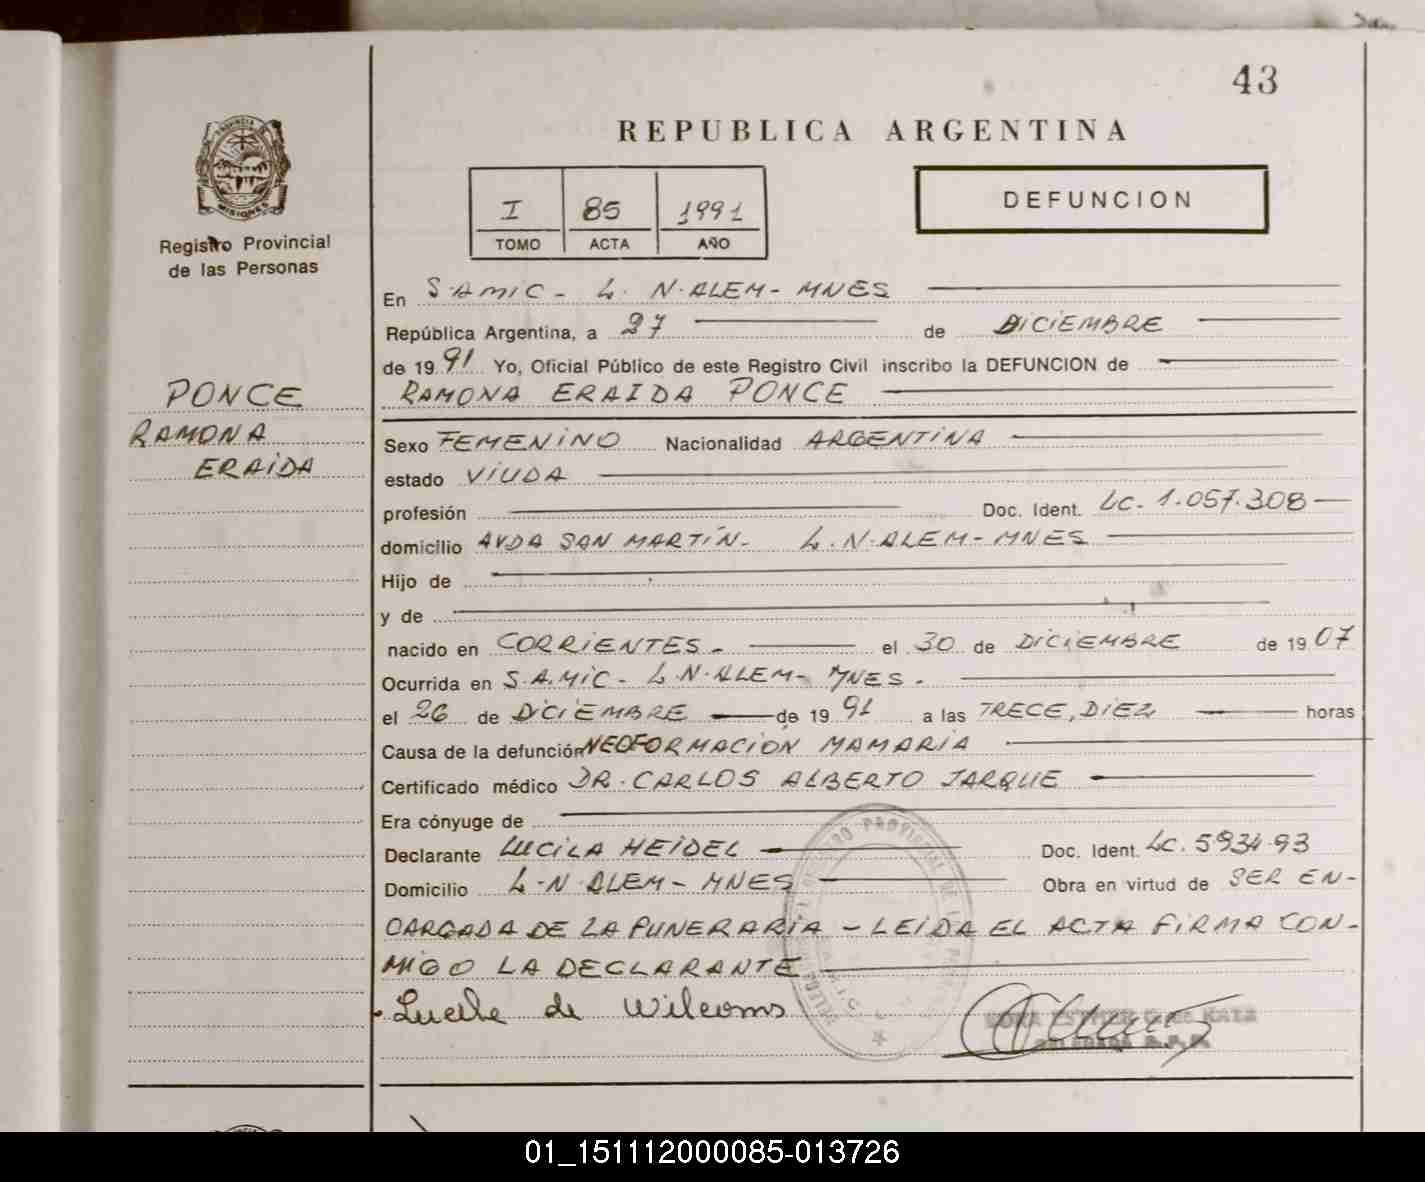 43
REPUBLICA ARGENTINA
PROVINCIA DE
MISIONES
Registro Provincial
de las Personas
I 85 1991
TOMO ACTA AÑO
DEFUNCION
En S.AMIC - L. N. ALEM - MNES
República Argentina, a 27 de DICIEMBRE
de 1991 Yo, Oficial Público de este Registro Civil inscribo la DEFUNCION de
RAMONA ERAIDA PONCE
PONCE
RAMONA
ERAIDA
Sexo FEMENINO Nacionalidad ARGENTINA
estado VIUDA
profesión Doc. Ident. LC. 1.057.308
domicilio AVDA SAN MARTIN. L.N.ALEM - MNES
Hijo de
y de
nacido en CORRIENTES. el 30 de DICIEMBRE de 1907
Ocurrida en S.A.MIC - L.N.ALEM - MNES.
el 26 de DICIEMBRE de 1991 a las TRECE, DIEZ horas
Causa de la defunción NEOFORMACION MAMARIA
Certificado médico DR. CARLOS ALBERTO JARQUE
Era cónyuge de
Declarante LUCILA HEIDEL Doc. Ident. LC.
Domicilio L.N ALEM - MNES Obra en virtud de SER EN-
CARGADA DE LA FUNERARIA - LEIDA EL ACTA FIRMA CON-
MIGO LA DECLARANTE
de Wilcoms
01_151112000085-013726